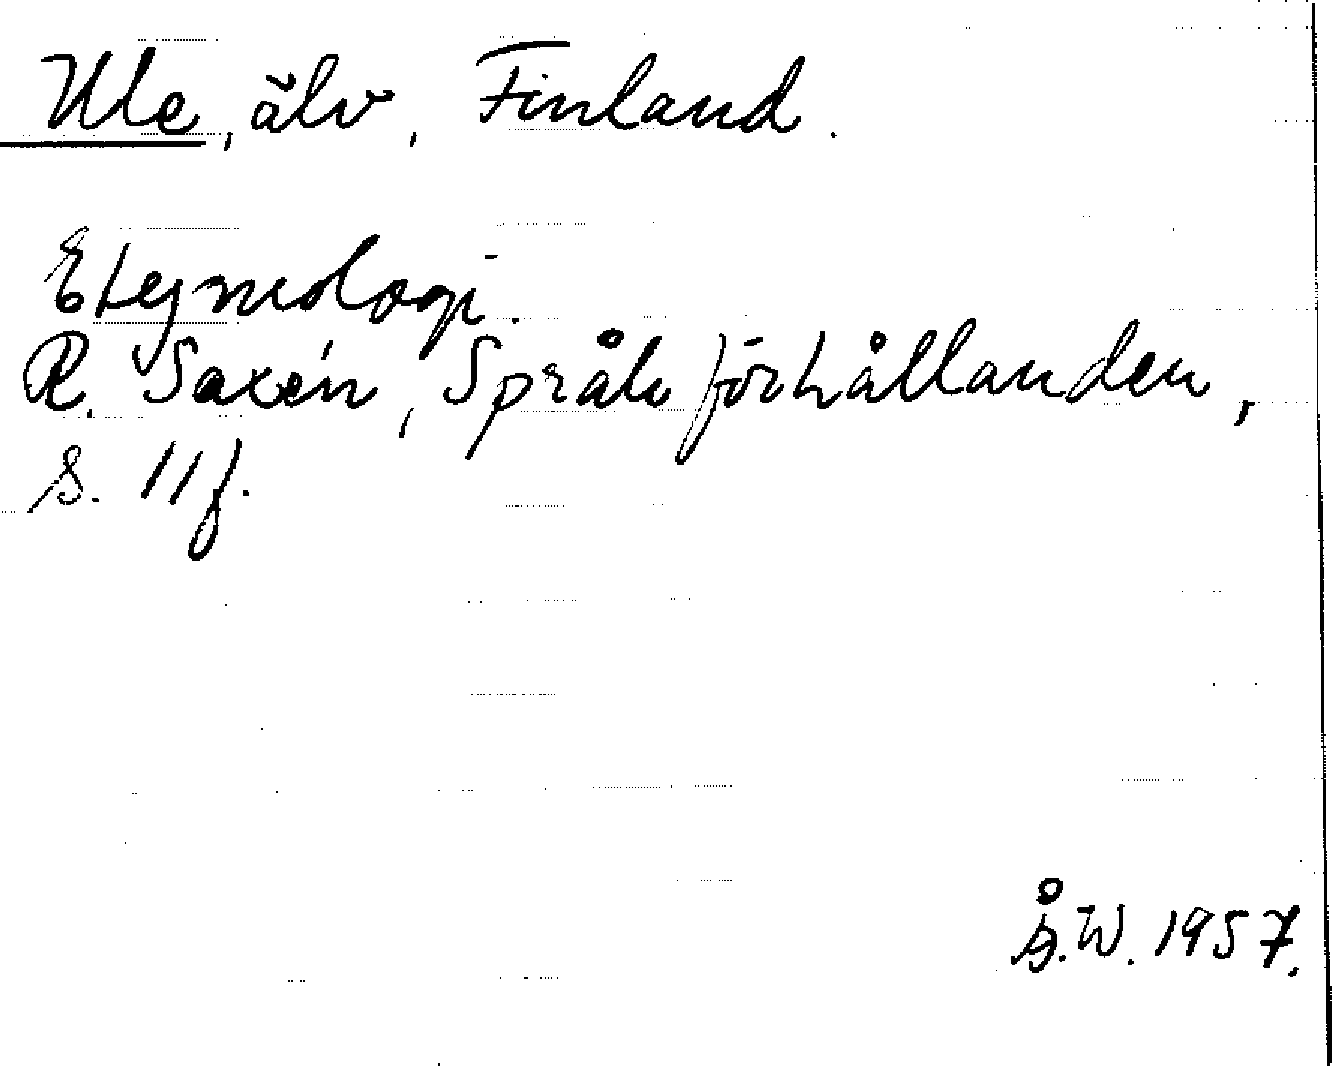 Ule, älv, Finland.
Etymologi.
R. Saxén, Språkförhållanden,
s. 11 f.
Å.W. 1957.